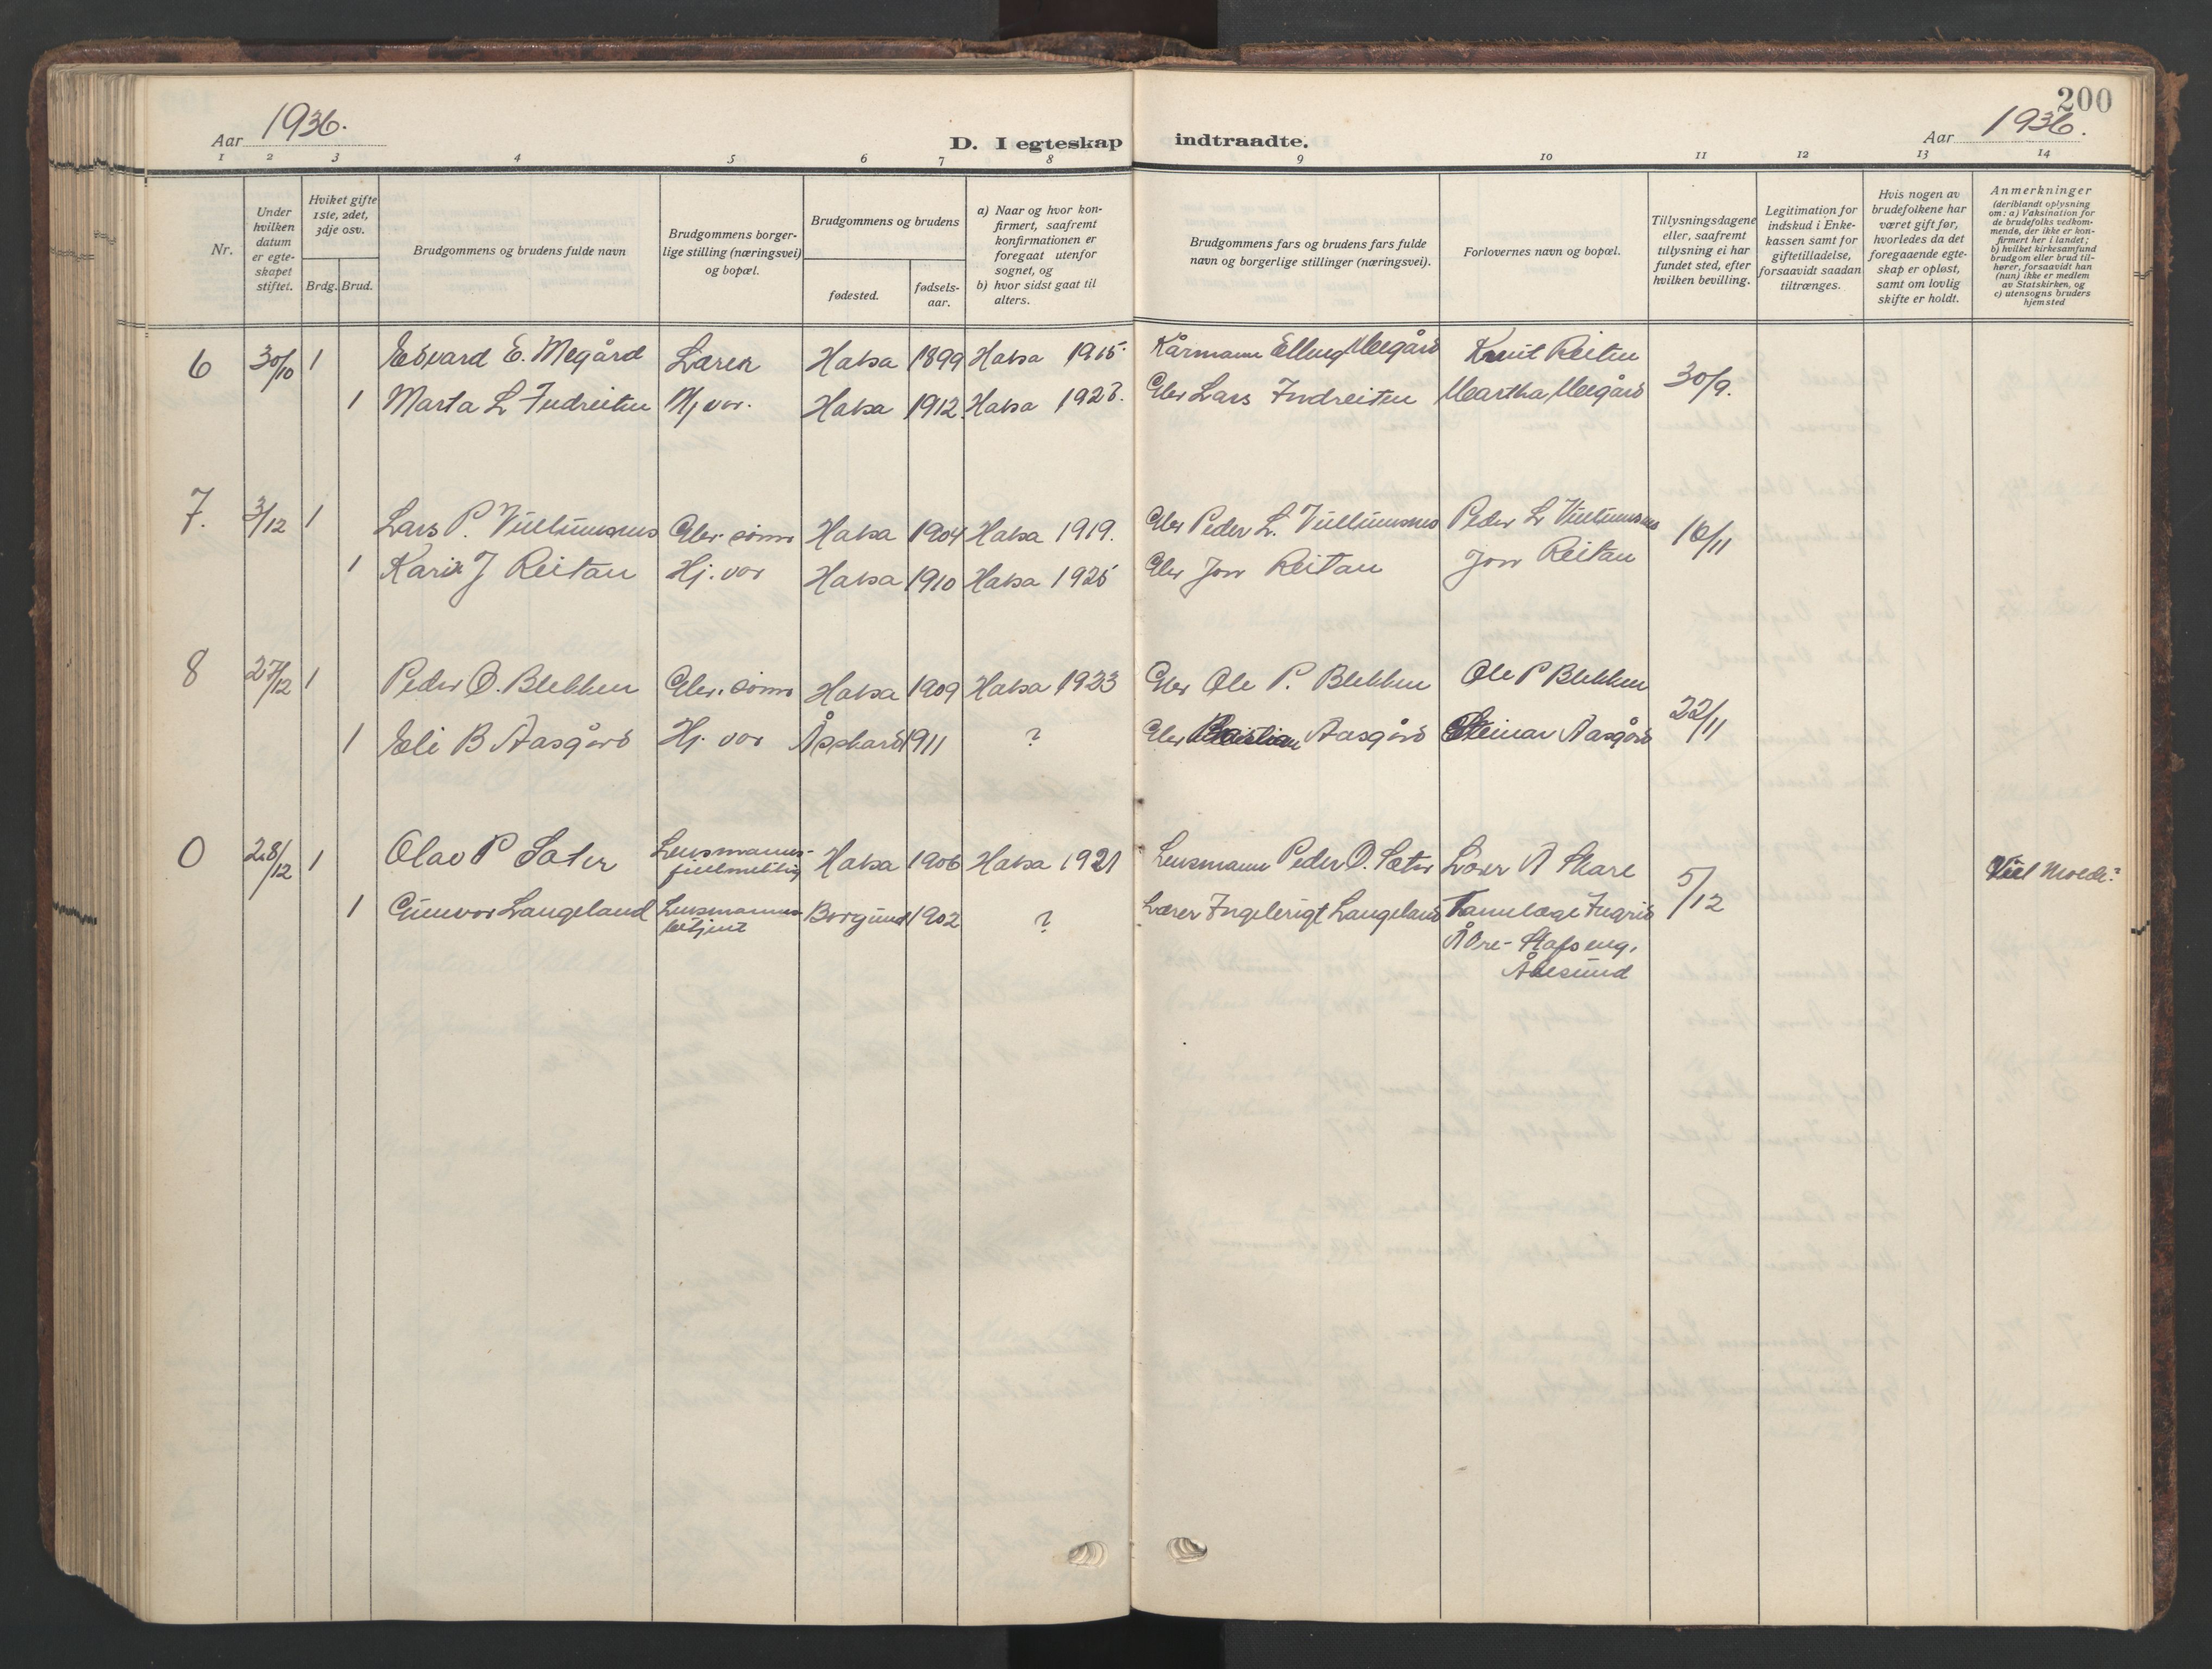 200
Aar 1936.
D. I egteskap indtraadte.
Aar 1936.
1 2 3 4 5 6 7 8 9 10 11 12 13 14
Nr.
Under hvilken datum er egte-skapet stiftet.
Hviket gifte 1ste, 2det, 3dje osv.
Brdg. Brud.
Brudgommens og brudens fulde navn
Brudgommens borger-lige stilling (næringsvei) og bopæl.
Brudgommens og brudens
fødested.
fødsels-aar.
a) Naar og hvor kon-firmert, saafremt konfirmationen er foregaat utenfor sognet, og
b) hvor sidst gaat til alters.
Brudgommens fars og brudens fars fulde navn og borgerlige stillinger (næringsvei).
Forlovernes navn og bopæl.
Tillysningsdagene eller, saafremt tillysning ei har fundet sted, efter hvilken bevilling.
Legitimation for indskud i Enke-kassen samt for giftetilladelse, forsaavidt saadan tiltrænges.
Hvis nogen av brudefolkene har været gift før, hvorledes da det foregaaende egte-skap er opløst, samt om lovlig skifte er holdt.
Anmerkninger (deriblandt oplysning om: a) Vaksination for de brudefolks vedkom-mende, der ikke er kon-firmert her i landet; b) hvilket kirkesamfund brudgom eller brud til-hører, forsaavidt han (hun) ikke er medlem av Statskirken, og c) utensogns bruders hjemsted
6 30/10 1 Edvard E. Megård Halsa 1899 Halsa 1915. Kårmann Elling Megård Knut Reiten 30/9.
1 Marta L Indreiten Hj. vor. Halsa 1912. Halsa Gbr Lars Indreiten Martha Megård
7. 3/12 1 Lars P. Vullumsnes Gbr. sønn Halsa 1904 Halsa 1919. Gbr Peder L. Vullumsnes Peder L Vullumsnes 16/11
1 Karin J Reitan Hj. vor Halsa 1910 Halsa 1925 Gbr Jon Reitan Jon Reitan
8 27/12 1 Peder O. Blekken Gbr. sønn Halsa 1909 Halsa 1923 Gbr Ole P. Blekken Ole P Blekken 22/11
1 Eli B Aasgård Hj. vor 1911 ? Gbr Aasgård Steinar Aasgård
0 28/12 1 Olav P Sæter Lensmanns-fullmektig Halsa 1906 Halsa 1921 Lensmann Peder O. Sæter Lærer A Skare 5/12 Molde.
1 Gunvor Langeland Lensmanns-betjent Borgund 1902 ? Lærer Langeland Tannlæge Ingrid
Ålesund